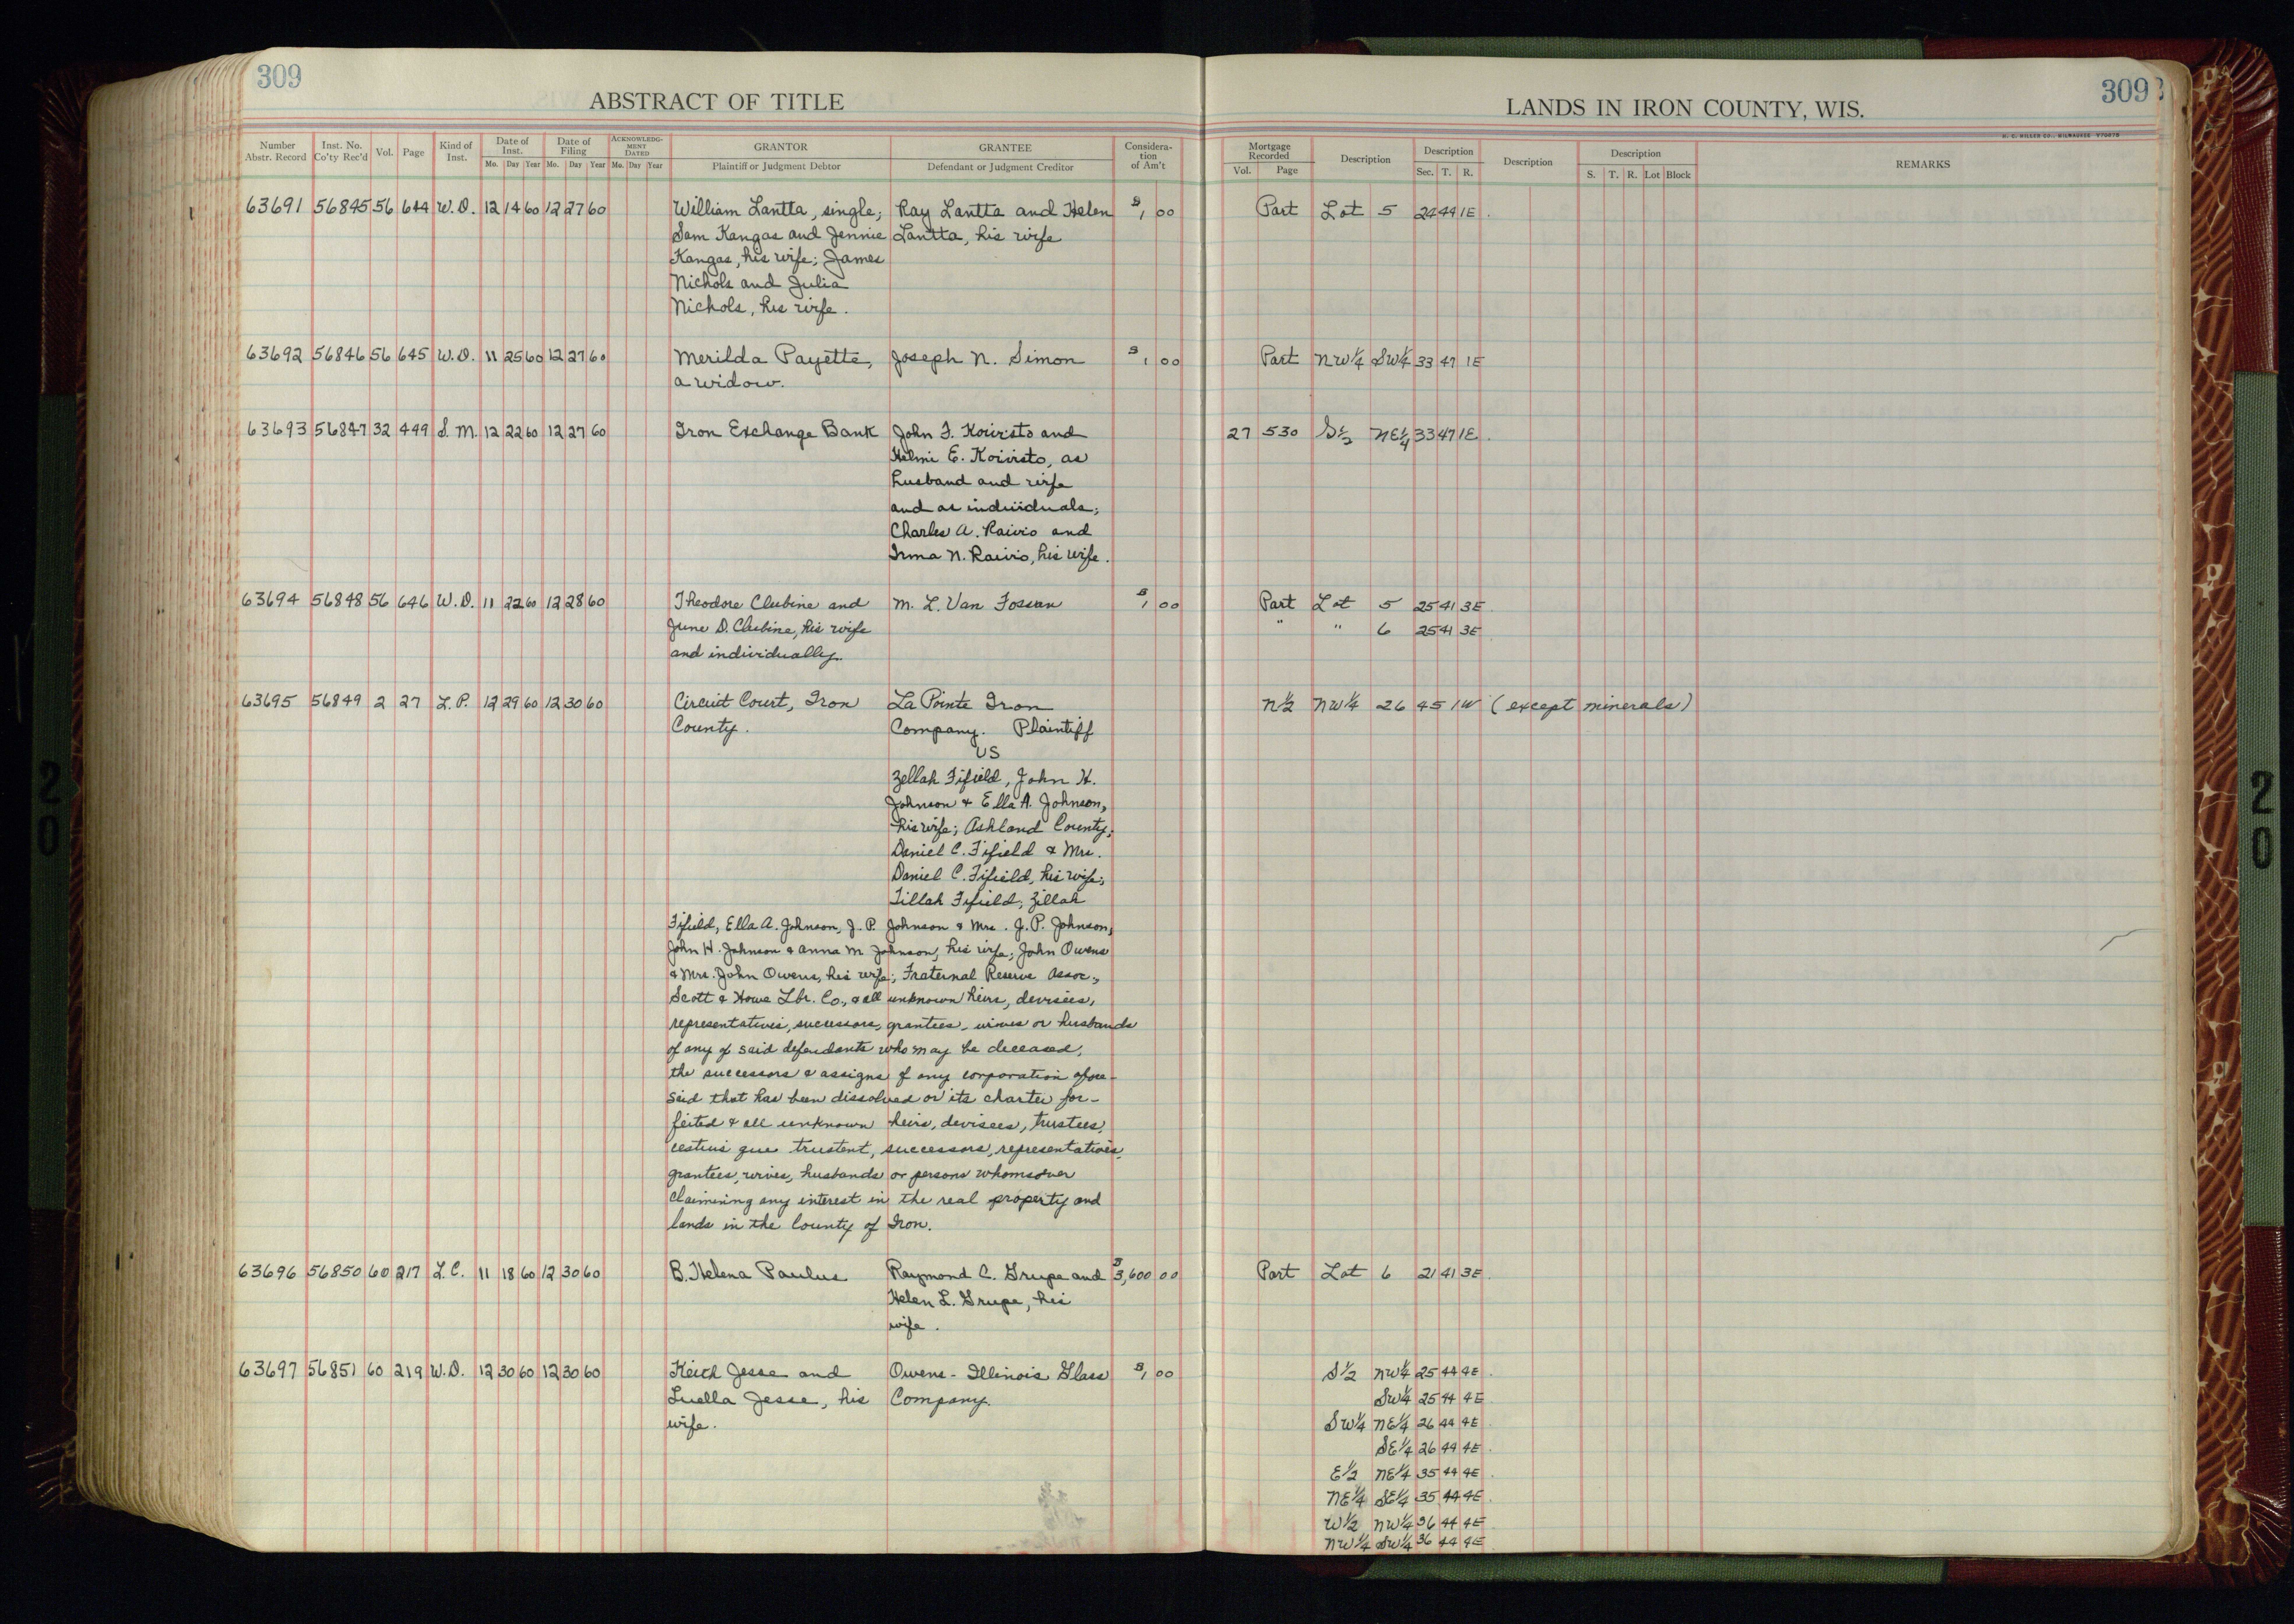 309
ABSTRACT OF TITLE
Number Abstr. Record | Inst. No. Co'ty Rec'd | Vol. | Page | Kind of Inst. | Date of Inst. Mo. Day Year | Date of Filing Mo. Day Year | ACKNOWLEDGMENT DATED Mo. Day Year | GRANTOR Plaintiff or Judgment Debtor | GRANTEE Defendant or Judgment Creditor | Consideration of Am't
LANDS IN IRON COUNTY, WIS.
309
Mortgage Recorded Vol. Page | Description | Description Sec. T. R. | Description | Description S. T. R. Lot Block | REMARKS
63691 56845 56 644 W.D. 12 14 60 12 27 60 William Lantta, single; Ray Lantta and Helen $1 00 Part Lot 5 24 44 1E.
Sam Kangas and Jennie Lantta, his wife
Kangas, his wife; James
Nichols and Julia
Nichols, his wife.
63692 56846 56 645 W.D. 11 25 60 12 27 60 Merilda Payette, Joseph N. Simon $1 00 Part NW¼ SW¼ 33 47 1E
a widow.
63693 56847 32 449 S.M. 12 22 60 12 27 60 Iron Exchange Bank John F. Koivisto and 27 530 S½ NE¼ 33 47 1E.
Helmi E. Koivisto, as
husband and wife
and as individuals;
Charles A. Raivio and
Irma N. Raivio, his wife.
63694 56848 56 646 W.D. 11 22 60 12 28 60 Theodore Clubine and M. L. Van Fossan $1 00 Part Lot 5 25 41 3E.
June D. Clubine, his wife " " 6 25 41 3E
and individually.
63695 56849 2 27 L.P. 12 29 60 12 30 60 Circuit Court, Iron La Pointe Iron N½ NW¼ 26 45 1W (except minerals)
County. Company. Plaintiff
VS
Zellah Fifield, John H.
Johnson & Ella A. Johnson,
his wife; Ashland County;
Daniel C. Fifield & Mrs.
Daniel C. Fifield, his wife;
Tillah Fifield; Zillah
Fifield, Ella A. Johnson, J. P. Johnson & Mrs. J. P. Johnson,
John H. Johnson & Anna M Johnson, his wife; John Owens
& Mrs. John Owens, his wife; Fraternal Reserve Assoc.,
Scott & Howe Lbr. Co., & all unknown heirs, devisees,
representatives, successors, grantees, wives or husbands
of any of said defendants who may be deceased,
the successors & assigns of any corporation afore-
said that has been dissolved or its charter for-
feited & all unknown heirs, devisees, trustees,
cestius que trustent, successors, representatives,
grantees, wives, husbands or persons whomsover
claimining any interest in the real property and
lands in the County of Iron.
63696 56850 60 217 L.C. 11 18 60 12 30 60 B. Helena Paulus Raymond C. Grupe and $3,600 00 Part Lot 6 21 41 3E.
Helen L. Grupe, his
wife.
63697 56851 60 219 W.D. 12 30 60 12 30 60 Keith Jesse and Owens-Illinois Glass $1 00 S½ NW¼ 25 44 4E.
Luella Jesse, his Company. SW¼ 25 44 4E
wife. SW¼ NE¼ 26 44 4E
SE¼ 26 44 4E.
E½ NE¼ 35 44 4E.
NE¼ SE¼ 35 44 4E.
W½ NW¼ 36 44 4E.
NW¼ SW¼ 36 44 4E
20
20